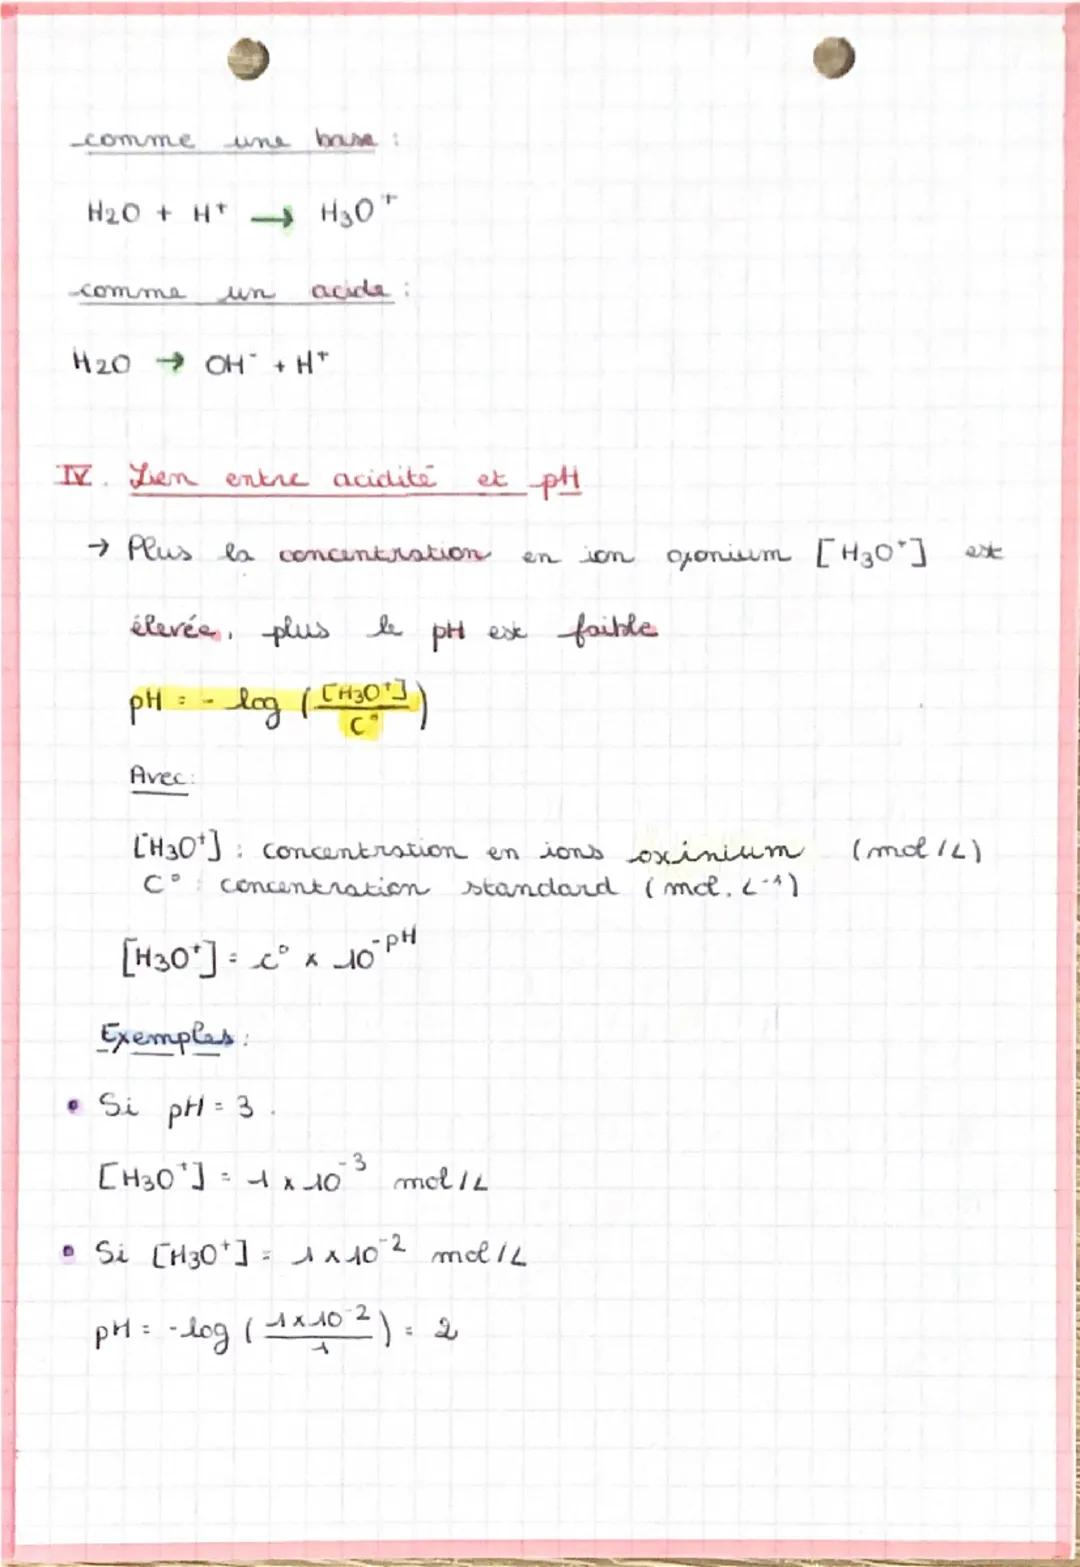 comme une base :
H2O + H⁺ → H3O⁺
comme un acide :
H2O → OH⁻ + H⁺
IV. Lien entre acidité et pH
→ Plus la concentration en ion oxonium [H3O⁺] est
élevée, plus le pH est faible
pH = - log ([H3O⁺]/C°)
Avec:
[H3O⁺] : concentration en ions oxinium (mol/L)
C° : concentration standard (mol.L⁻¹)
[H3O⁺] = c° x 10⁻ᵖᴴ
Exemples :
• Si pH = 3.
[H3O⁺] = 1 x 10⁻³ mol/L
• Si [H3O⁺] = 1 x 10⁻² mol/L
pH = -log (1x10⁻²/1) = 2